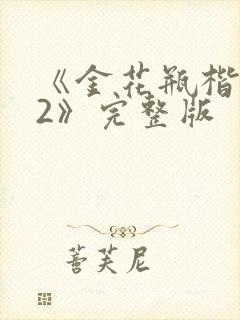 《金花瓶楷
2》完整版
蔷芙尼